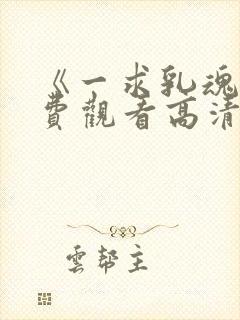 《一求乳魂
費觀看高清
雲幫主